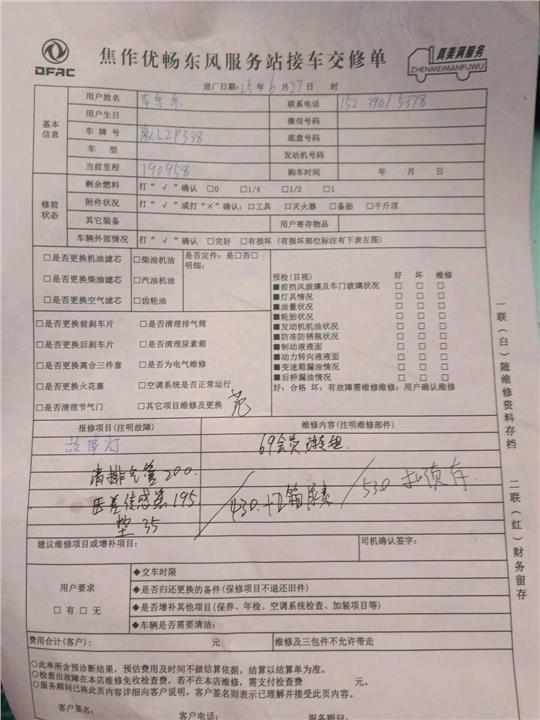 DFAC
焦作优畅东风服务站接车交修单
真美满服务
ZHENMEIMANFUWU
进厂日期:25年6月27日 时
基本信息
用户姓名
联系电话
用户生日 微信号码
车牌号 底盘号码
车型 发动机号码
当前里程 190958 购车时间 年 月 日
修前状态
剩余燃料 打“√”确认 □0 □1/4 □1/2 □1
附件状况 打“√”或打“×”确认:□工具 □灭火器 □备胎 □千斤顶
其它装备 用户寄存物品
车辆外部情况 打“√”确认 □完好 □有损坏(有损坏部位标注有下表左图)
□是否更换机油滤芯 □柴油机油 是否定件:是□否□
明细:
□是否更换柴油滤芯 □汽油机油
□是否更换空气滤芯 □齿轮油
□是否更换前刹车片 □是否清理排气筒
□是否更换后刹车片 □是否清理尿素箱
□是否更换离合三件套 □是否为电气维修
□是否更换火花塞 □空调系统是否正常运行
□是否清理节气门 □其它项目维修及更换
预检(目视) 好 坏 维修
■前挡风玻璃及车门玻璃状况 □ □ □
■灯具情况 □ □ □
■油量状况 □ □ □
■轮胎状况 □ □ □
■发动机机油状况 □ □ □
■防冻防锈瓶状况 □ □ □
■制动液液面 □ □ □
■动力转向液液面 □ □ □
■变速箱漏油情况 □ □ □
■后桥漏油情况 □ □ □
好:合格 坏:有故障需维修维修:用户确认维修
报修项目(注明故障) 维修内容(注明维修部件)
故障灯
清排气管 200.
压差传感器 195
垫 35
430.+1箱尿素
530
建议维修项目或增补项目: 司机确认签字:
用户要求
□有 □无
◆交车时限
◆是否归还更换的备件(保修项目不退还旧件)
◆是否增补其他项目(保养、年检、空调系统检查、加装项目等)
◆车辆是否需要清洁:
费用合计(客户): 元 维修及三包件不允许带走
○此单所含预诊断结果,预估费用及时间不做结算依据,结算以结算单为准。
○检查出故障在本店维修免收检查费,若不在本店维修,需支付检查费 元。
○服务顾问已将此页内容详细向客户说明,客户签名则表示已理解并接受此页内容。
客户签名: 客户电话: 服务顾问:
一联(白)随维修资料存档 二联(红)财务留存